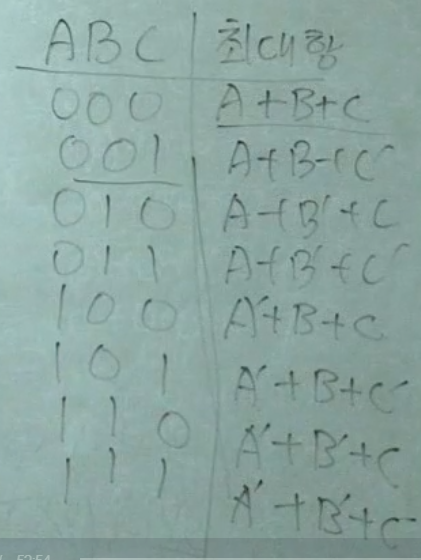 A B C | 최대항
0 0 0 | A+B+C
0 0 1 | A+B+C'
0 1 0 | A+B'+C
0 1 1 | A+B'+C'
1 0 0 | A'+B+C
1 0 1 | A'+B+C'
1 1 0 | A'+B'+C
1 1 1 | A'+B'+C'
52:54